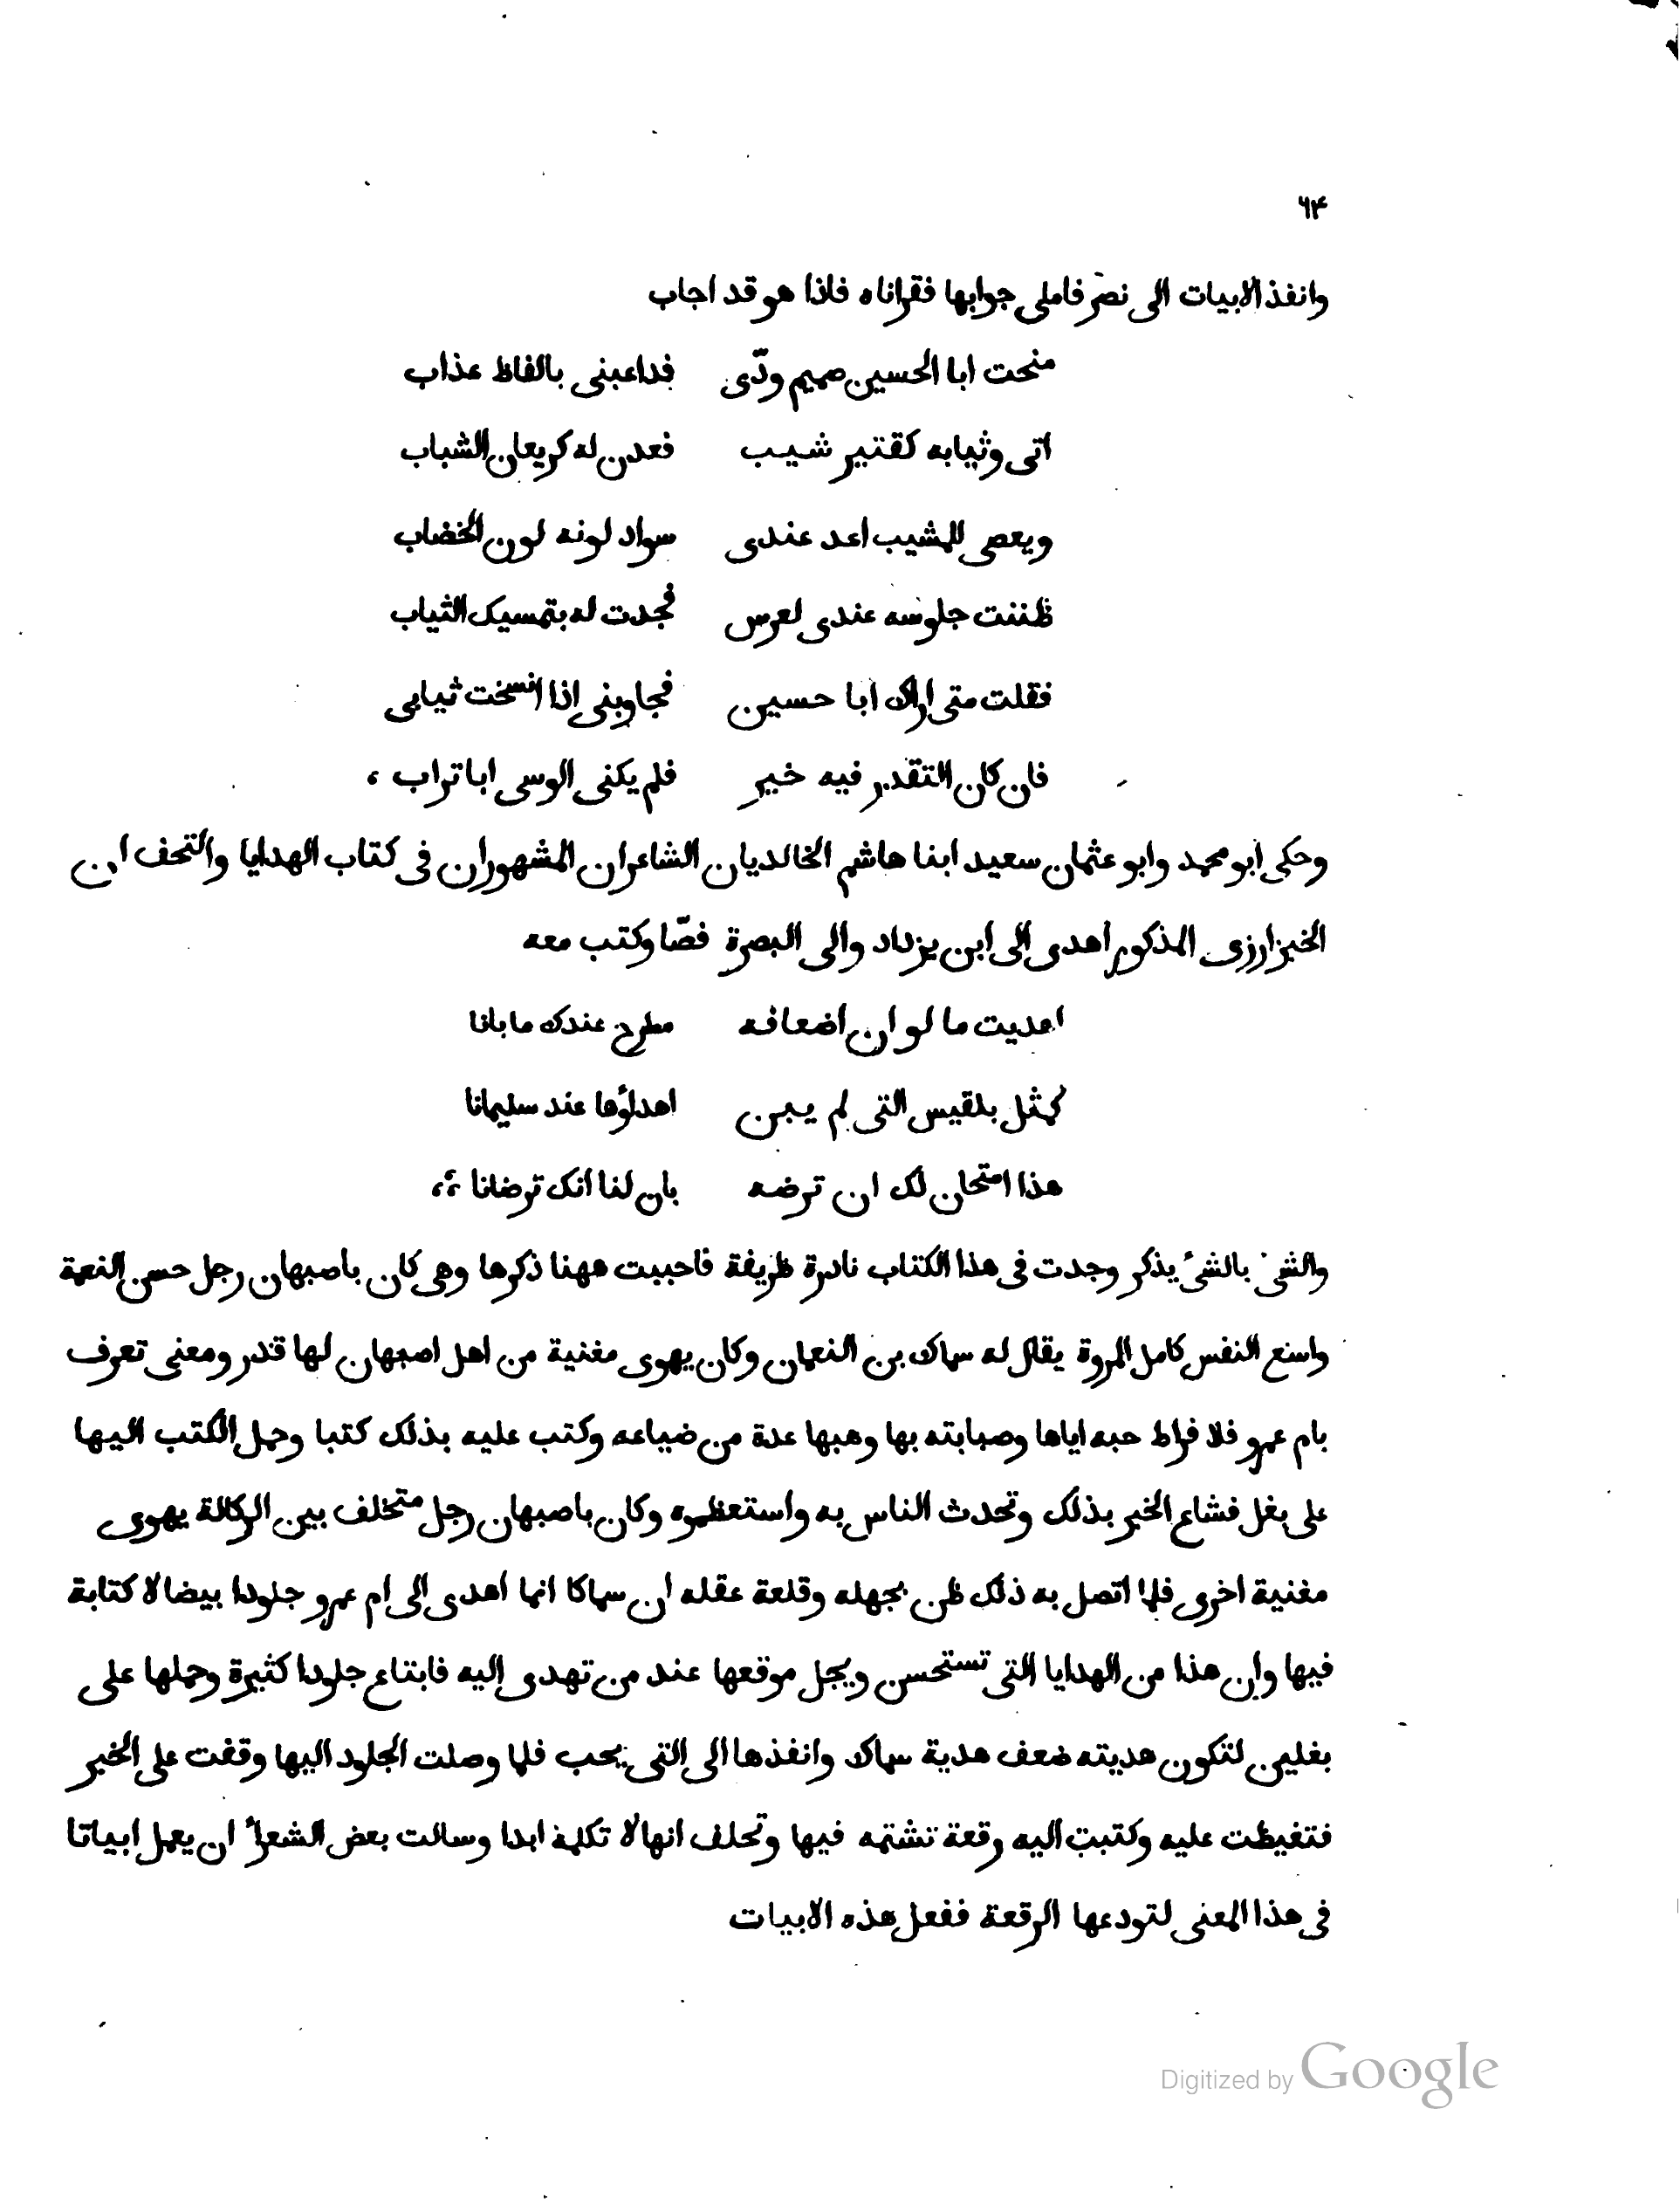 ٦۴
وانفذ الابيات الى نصر فاملى جوابها فقراناه فاذا هو قد اجاب
منحت ابا الحسين صميم ودّى فداعبنى بالفاظ عذاب
اتى وثيابه كقتير شيب فعدن له كريعان الشباب
وبعصى للمشيب اعد عندى سواد لونه لون الخضاب
ظننت جلوسه عندى لعرس فجدت له بتمسيك الثياب
فقلت متى اراك ابا حسين فجاوبنى اذا انسخت ثيابى
فان كان التقدر فيه خير فلم يكنى الوسى ابا تراب ،
وحكى ابو محمد وابو عثمان سعيد ابنا هاشم الخالديان الشاعران المشهوران فى كتاب الهدايا والتحف ان
الخبزارزى المذكور اهدى الى ابن يزداد والى البصرة فصّا وكتب معه
اهديت ما لو ان اضعافه مطرح عندك ما بانا
كمثل بلقيس التى لم يبن اهداؤها عند سليمانا
هذا امتحان لك ان ترضه بان لنا انك ترضانا ؞
والشىء بالشىء يذكر وجدت فى هذا الكتاب نادرة ظريفة فاحببت ههنا ذكرها وهى كان باصبهان رجل حسن النعمة
واسع النفس كامل المروة يقال له سماك بن النعمان وكان يهوى مغنية من اهل اصبهان لها قدر ومعنى تعرف
بام عمرو فلا فراط حبه اياها وصبابته بها وهبها عدة من ضياعه وكتب عليه بذلك كتبا وحمل الكتب اليها
على بغل فشاع الخبر بذلك وتحدث الناس به واستعظموه وكان باصبهان رجل متخلف بين الركالة يهوى
مغنية اخرى فلما اتصل به ذلك ظن بجهله وقلعة عقله ان سماكا انما اهدى الى ام عمرو جلودا بيضا لا كتابة
فيها وان هذا من الهدايا التى تستحسن ويجل موقعها عند من تهدى اليه فابتاع جلودا كثيرة وحملها على
بغلين لتكون هديته ضعف هدية سماك وانفذها الى التى يحب فلما وصلت الجلود اليها وقفت على الخبر
فتغيظت عليه وكتبت اليه رقعة تشتمه فيها وتحلف انها لا تكلمه ابدا وسالت بعض الشعراء ان يعمل ابياتا
فى هذا المعنى لتودعها الرقعة ففعل هذه الابيات
Digitized by Google